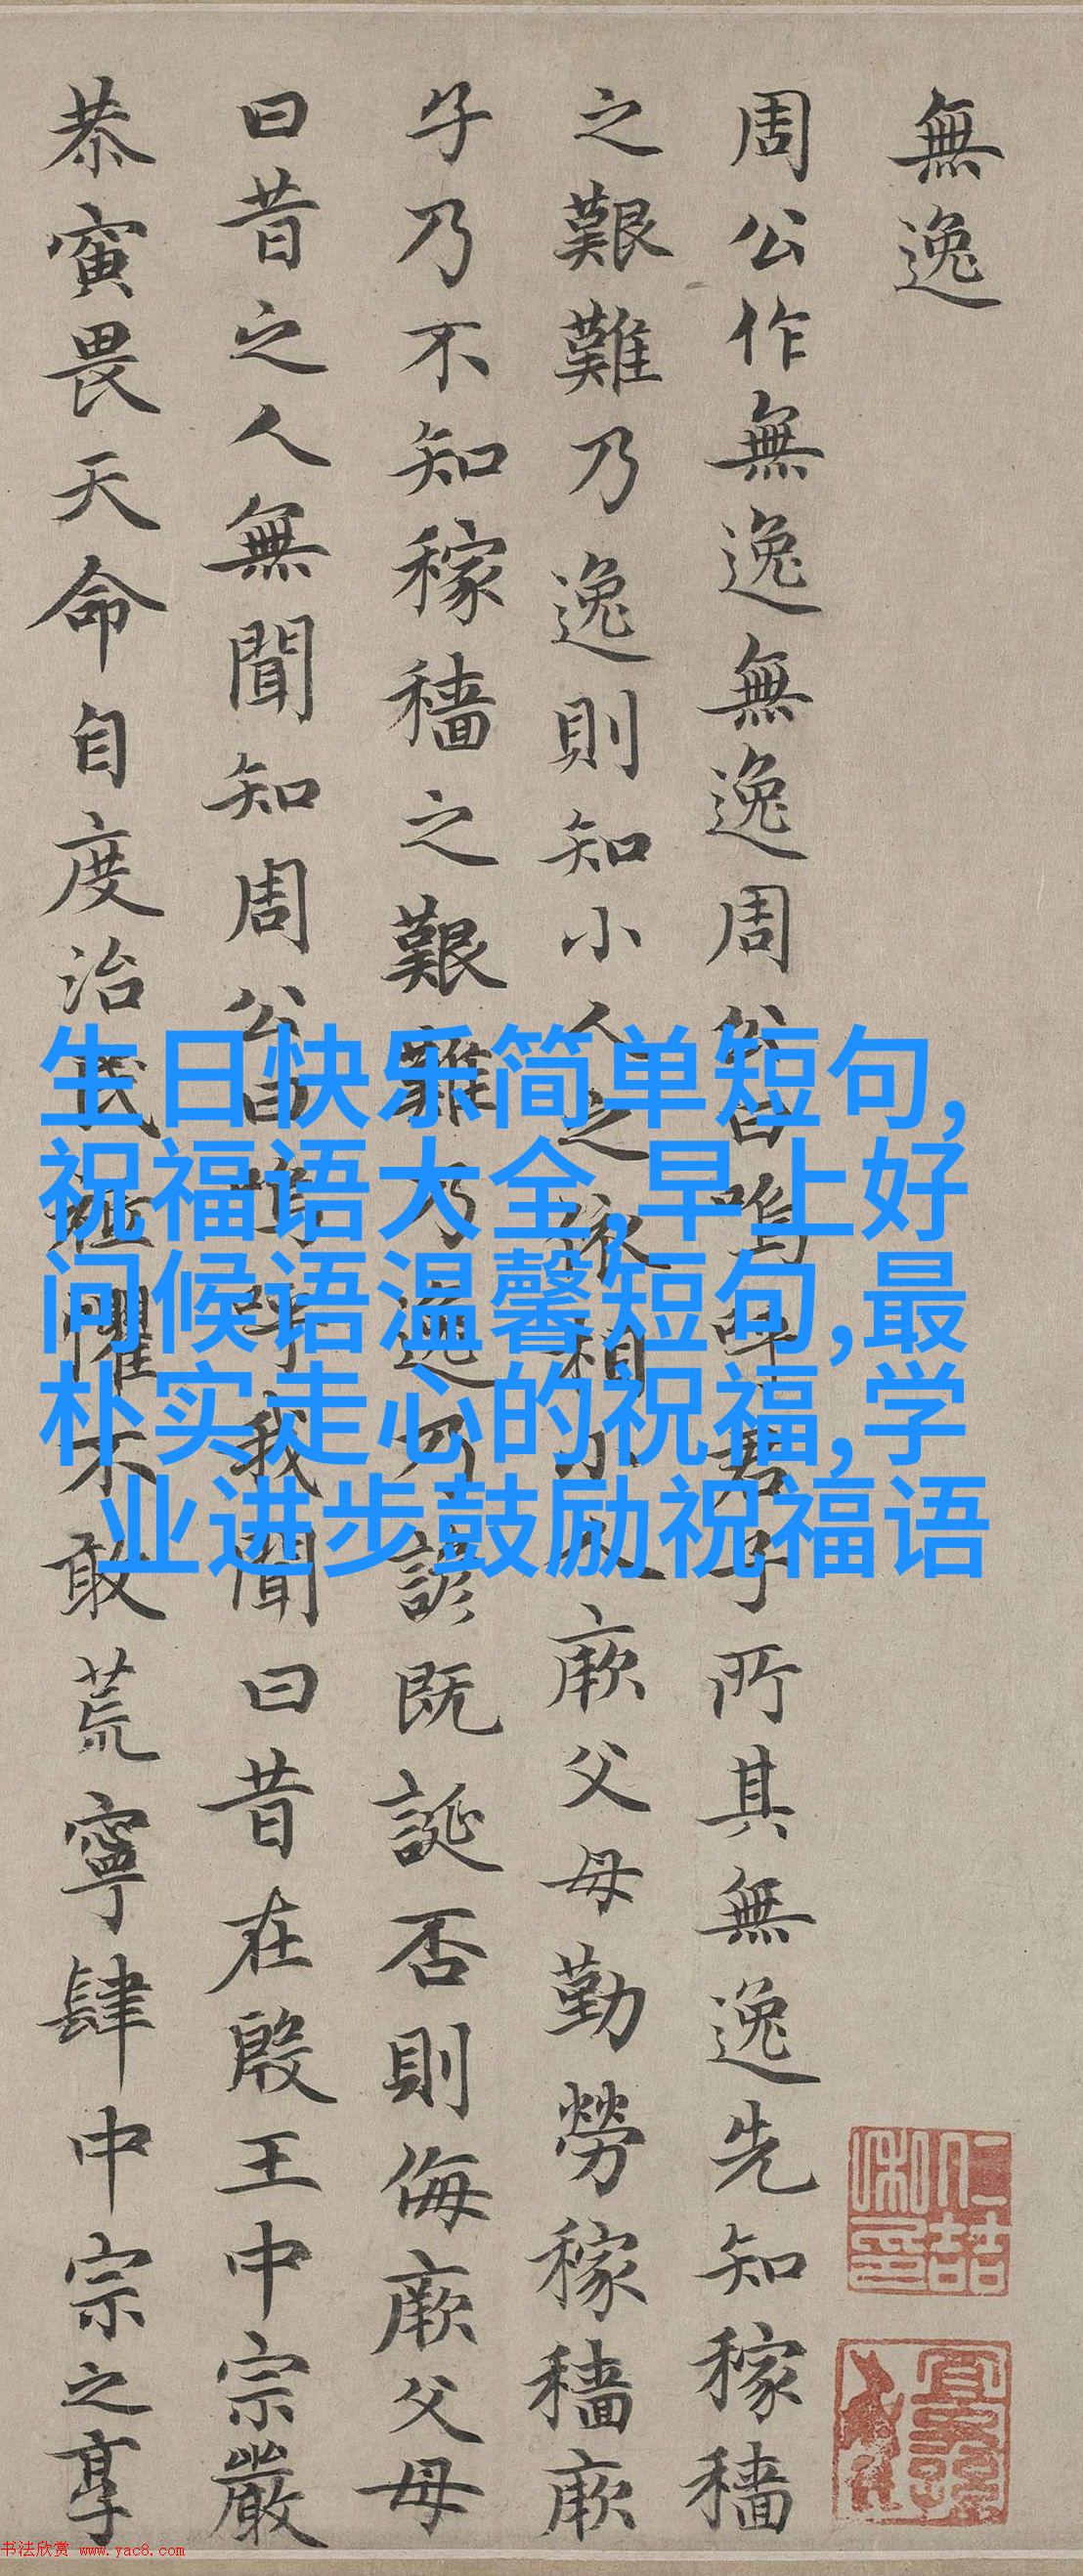 無逸
周公作無逸無逸周公曰嗚呼君子所其無逸先知稼穡
之艱難乃逸則知小人之依相小人厥父母勤勞稼穡厥
子乃不知稼穡之艱難乃逸乃諺既誕否則侮厥父母
曰昔之人無聞知周公曰嗚呼我聞曰昔在殷王中宗嚴
恭寅畏天命自度治民祗懼不敢荒寧肆中宗之享
生日快乐简单短句,
祝福语大全,早上好
问候语温馨短句,最
朴实走心的祝福,学
业进步鼓励祝福语
书法欣赏 www.yac8.com